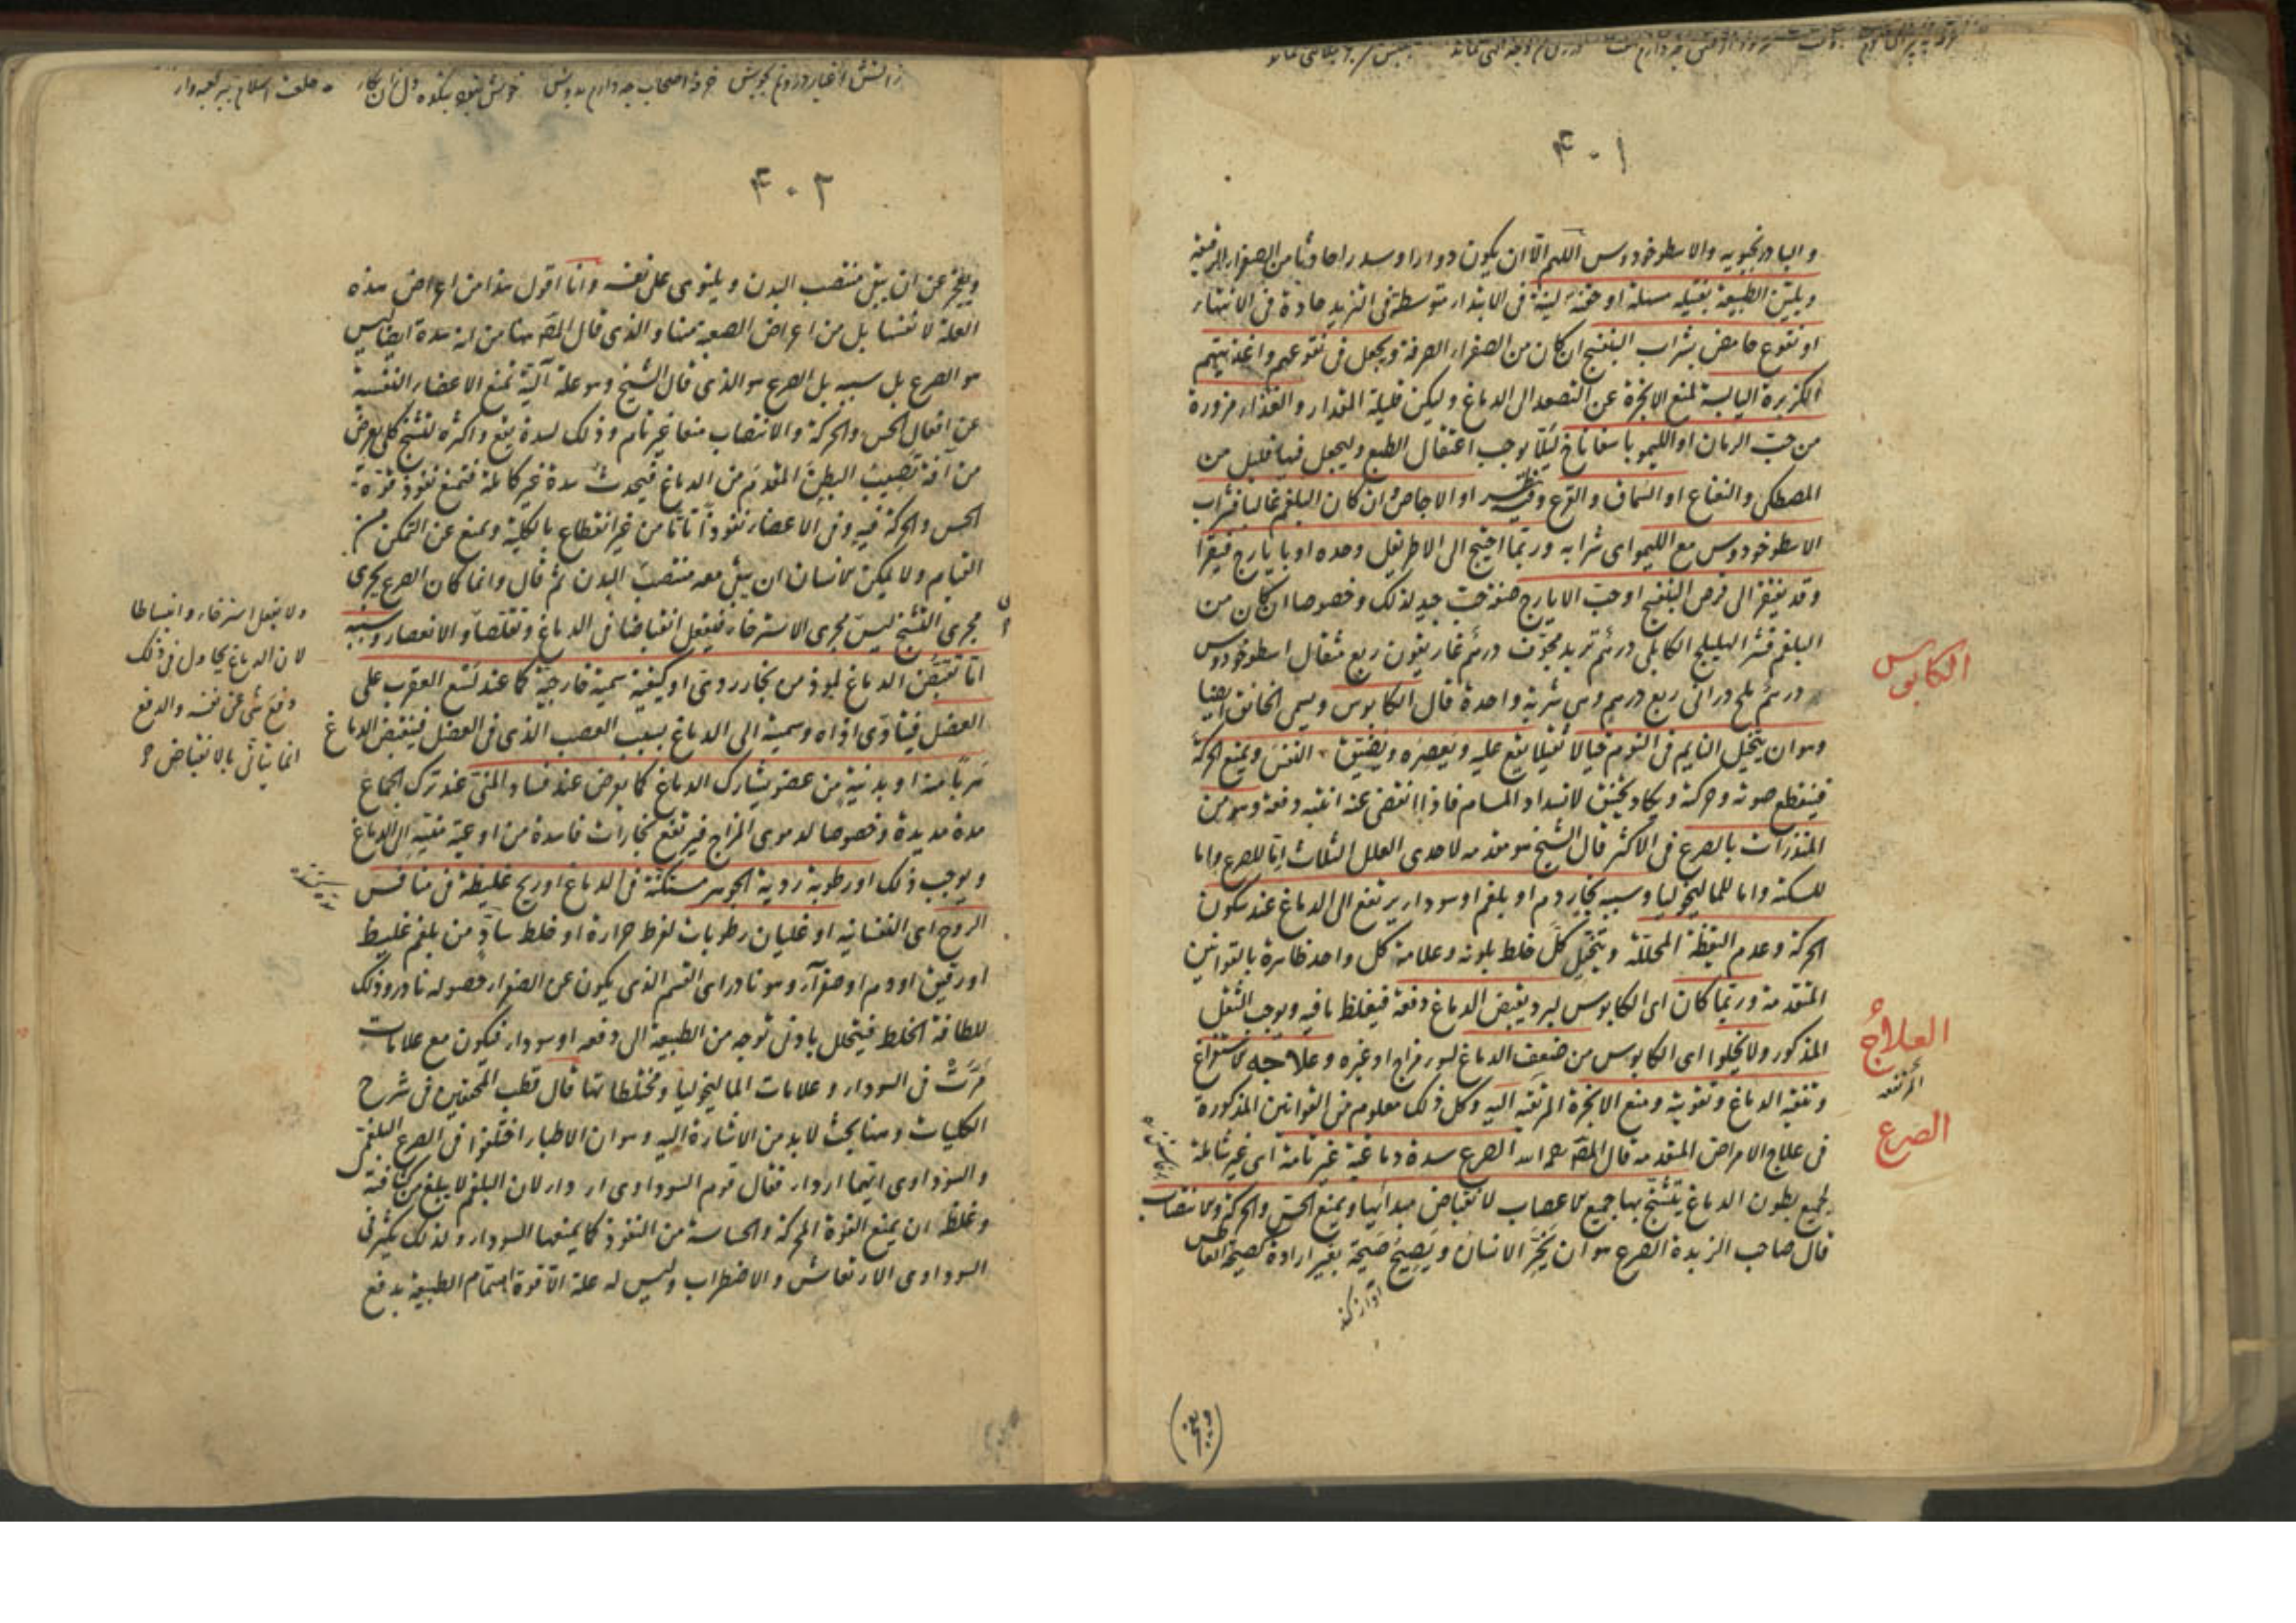 ۴۰۱
والبادرنجبويه والاسطوخودوس اللهم الا ان يكون دوارا وسدرا حادثا من الصفراء الرقيقة
ويلين الطبيعة بفتيله مسهلة او حقنة لينة فى الابتداء متوسطة فى التزيد حادة فى الانتهاء
او نقوع حامض بشراب البنفسج ان كان من الصفراء الصرفة ويجعل فى نقوعهم واغذيتهم
الكزبرة اليابسة لمنع الابخرة عن التصعد الى الدماغ وليكن قليلة المقدار والغذاء مزورة
من حب الرمان او الليمو باسفاناخ لئلا يوجب اعتقال الطبع وليجعل فيها قليل من
المصطكى والنعناع او السماق والقرع وفيه نظر او الاجاص وان كان البلغم غالبا فشراب
الاسطوخودوس مع الليمو اى شرابه وربما احتيج الى الاطريفل وحده او بايارج فيقرا
وقد يفتقر الى قرص البنفسج او حب الايارج صنعة حب جيد لذلك وخصوصا ان كان من
البلغم قشر الهليلج الكابلى درهم تربد مجوف درهم غاريقون ربع مثقال اسطوخودوس
درهم ملح درانى ربع درهم وهى شربة واحدة قال الكابوس ويسمى الخانق ايضا
وهو ان يتخيل النايم فى النوم خيالا ثقيلا يقع عليه ويعصره ويضيق النفس ويمنع الحركة
فينقطع صوته وحركته ويكاد يختنق لانسداد المسام فاذا انقضى عنه انتبه دفعة وهو من
المنذرات بالصرع فى الاكثر قال الشيخ هو مقدمه لاحدى العلل الثلاث اما للصرع واما
للسكتة واما للماليخوليا وسببه بخار دم او بلغم او سوداء يرتفع الى الدماغ عند سكون
الحركة وعدم اليقظة المحللة ويتخيل كل خلط بلونه وعلامة كل واحد ظاهرة بالقوانين
المتقدمة وربما كان اى الكابوس لبرد يقبض الدماغ دفعة فيغلظ ما فيه ويوجب الثقل
المذكور ولا يخلوا اى الكابوس من ضعف الدماغ لسوء مزاج او غيره وعلاجه الاستفراغ
وتنقية الدماغ وتقويته ومنع الابخرة المرتقية اليه وكل ذلك معلوم من القوانين المذكورة
فى علاج الامراض المتقدمه قال المصنف رحمه الله الصرع سدة دماغية غير تامة اى غير شاملة
لجميع بطون الدماغ يتشنج بها جميع الاعصاب لانقباض مبدائها ويمنع الحس والحركة والانتصاب
قال صاحب الزبدة الصرع هو ان يخر الانسان ويصيح صيحة بغير ارادة كصيحة العاطس
الكابوس
العلاج
الصرع
آواز كند
ويعجز
۴۰۲
ويعجز عن ان يبقى منتصب البدن ويلتوى على نفسه وانا اقول هذا من اعراض هذه
العلة لا نفسها بل من اعراض الصعبة منها والذى قال المصنف ههنا من انه سدة ايضا ليس
هو الصرع بل سببه بل الصرع هو الذى قال الشيخ وهو علة آلية تمنع الاعضاء النفسية
عن افعال الحس والحركة والانتصاب منعا غير تام وذلك لسدة يقع واكثره لتشنج كلى يعرض
من آفة تصيب البطن المقدم من الدماغ فيحدث سدة غير كاملة فتمنع نفوذ قوة
الحس والحركة فيه وفى الاعضاء نفوذا تاما من غير انقطاع بالكلية ويمنع عن التمكن من
القيام ولا يمكن للانسان ان يبقى معه منتصب البدن ثم قال وانما كان الصرع يجرى
مجرى التشنج ليس مجرى الاسترخاء فيفعل انقباضا فى الدماغ وتقلصا والانعصار وسببه
اما تقبض الدماغ لموذ من بخار ردىء او كيفية سمية خارجية كما عند لسع العقرب على
العضل فيتأدى اذاه وسميته الى الدماغ بسبب العصب الذى فى العضل فينقبض الدماغ
هربا منه او بدنية من عضو يشارك الدماغ كما يعرض عند فساد المنى عند ترك الجماع
مدة مديدة وخصوصا لدموى المزاج فيرتفع بخارات فاسدة من اوعية منيه الى الدماغ
ويوجب ذلك او رطوبة ردية الجوهر مستكنة فى الدماغ او ريح غليظة فى منافس
الروح اى النفسانيه او غليان رطوبات لفرط حرارة او خلط ساد من بلغم غليظ
او رقيق او دم او صفراء وهو نادر اى القسم الذى يكون عن الصفراء حصوله نادر وذلك
للطافة الخلط فيتحلل بادنى توجه من الطبيعة الى دفعه او سوداء فيكون مع علامات
مرت فى السوداء وعلامات الماليخوليا ومختلطاتها قال قطب المحققين فى شرح
الكليات وهنا بحث لابد من الاشارة اليه وهو ان الاطباء اختلفوا فى الصرع البلغمى
والسوداوى ايهما اردا فقال قوم السوداوى اردا لان البلغم لا يبلغ من كثافته
وغلظه ان يمنع القوة المحركة والحساسة من النفوذ كما يمنعها السوداء ولذلك يكثر فى
السوداوى الارتعاش والاضطراب وليس له علة الا قوة اهتمام الطبيعة بدفع
ولا يفعل استرخاء وانبساطا
لان الدماغ يحاول فى ذلك
دفع شىء عن نفسه والدفع
انما يتأتى بالانقباض